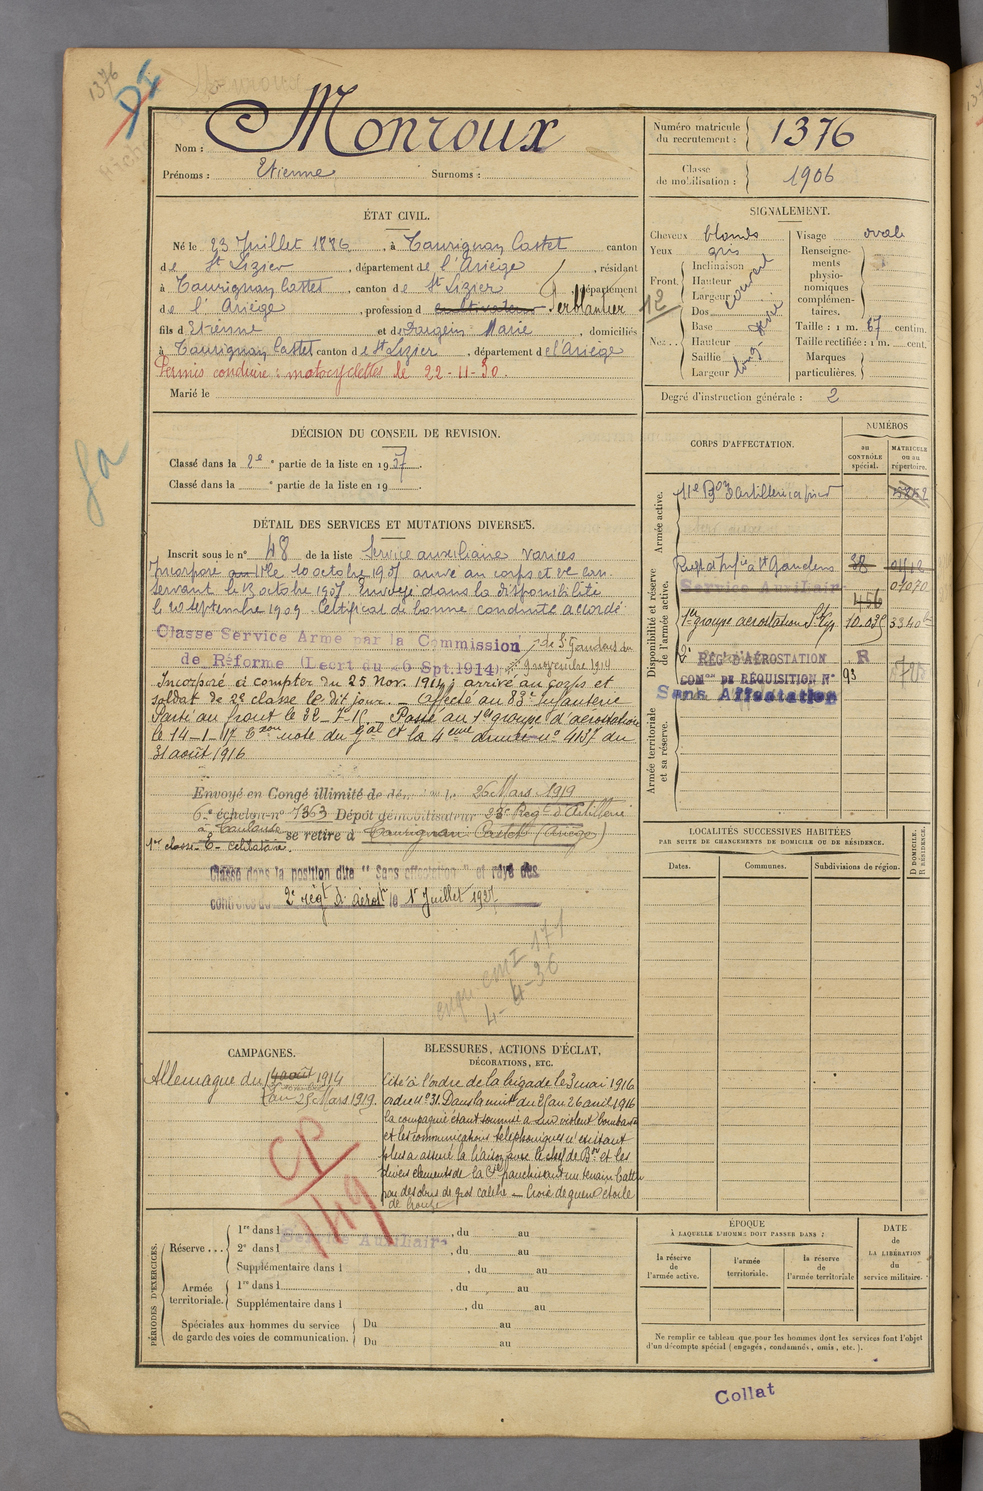 1376
Nom : Monroux
Prénoms : Etienne Surnoms :
Numéro matricule du recrutement : 1376
Classe de mobilisation : 1906
ÉTAT CIVIL.
Né le 23 Juillet 1886, à Taurignan Castet canton
de St Lizier, département de l'Ariège, résidant
à Taurignan Castet, canton de St Lizier, département
de l'Ariège, profession d cultivateur Ferblantier
fils d'Etienne et de Dargein Marie, domiciliés
à Taurignan Castet canton de St Lizier, département de l'Ariège
Permis conduire : motocyclettes le 22-11-30.
Marié le
SIGNALEMENT.
Cheveux blonds
Yeux gris
Front Inclinaison
Hauteur
Largeur
couvert
Nez Dos
Base
Hauteur
Saillie
Largeur
Visage ovale
Renseignements physionomiques complémentaires.
Taille : 1 m. 67 centim.
Taille rectifiée : 1 m. cent.
Marques particulières.
Degré d'instruction générale : 2
DÉCISION DU CONSEIL DE REVISION.
Classé dans la 2e partie de la liste en 1907.
Classé dans la e partie de la liste en 19
DÉTAIL DES SERVICES ET MUTATIONS DIVERSES.
Inscrit sous le n° 48 de la liste Service auxiliaire varices
Incorporé au 11e le 10 octobre 1907 arrivé au corps et 2e can.
servant le 13 octobre 1907. Envoyé dans la disponibilité
le 20 septembre 1909. Certificat de bonne conduite accordé
Classe Service Armé par la Commission de St Gaudens du
de Réforme (Décrt du 26 Spt. 1914) 9 novembre 1914
Incorporé à compter du 25 Nov. 1914, arrivé au corps et
soldat de 2e classe le dit jour. Affecté au 83e Infanterie
Parti au front le 22-7-15. Passé au 1er groupe d'aérostation
le 14-1-17 Don note du Gal Ct la 4eme armée n° 4137 du
31 août 1916
Envoyé en Congé illimité de dém 26 Mars 1919
6e échelon n° 1363 Dépôt démobilisateur 23e Régt d'Artillerie
à Toulouse se retire à Taurignan Castet (Ariège)
célibataire.
Classé dans la position dite "Sans affectation" et rayé des
contrôles du 2e régt d'aérost le 1er Juillet 1927
4-4-36
CORPS D'AFFECTATION.
NUMÉROS
au CONTRÔLE spécial.
MATRICULE ou au répertoire.
Armée active.
11e Bon d'artillerie à pied
Disponibilité et réserve de l'armée active.
Regt d'Infie à St Gaudens 38
Service Auxiliaire 07070
456
1er groupe aérostation St Cyr 10.035
2e RÉGT D'AÉROSTATION R
COMon DE RÉQUISITION N° 93
Sans Affectation
Armée territoriale et sa réserve.
LOCALITÉS SUCCESSIVES HABITÉES
PAR SUITE DE CHANGEMENTS DE DOMICILE OU DE RÉSIDENCE.
Dates. Communes. Subdivisions de région.
D DOMICILE. R RÉSIDENCE.
CAMPAGNES.
Allemagne du 4 août 1914
au 25 Mars 1919.
CP
BLESSURES, ACTIONS D'ÉCLAT,
DÉCORATIONS, ETC.
Cité à l'ordre de la brigade le 3 mai 1916
ordre n° 31. Dans la nuit du 25 au 26 avril 1916
la compagnie étant soumise à un violent bombardt
et les communications téléphoniques n'existant
plus a assuré la liaison avec le chef de Bon et les
divers éléments de la Cie franchissant un terrain battu
par des obus de gros calibre. Croix de guerre étoile
de bronze
PÉRIODES D'EXERCICES.
Réserve ... 1re dans l , du au
2e dans l , du au
Service Auxiliaire
Supplémentaire dans l , du au
Armée territoriale. 1re dans l , du au
Supplémentaire dans l , du au
Spéciales aux hommes du service de garde des voies de communication. Du au
Du au
ÉPOQUE
À LAQUELLE L'HOMME DOIT PASSER DANS :
la réserve de l'armée active.
l'armée territoriale.
la réserve de l'armée territoriale
DATE de LA LIBÉRATION du service militaire.
Ne remplir ce tableau que pour les hommes dont les services font l'objet
d'un décompte spécial (engagés, condamnés, omis, etc.).
Collat